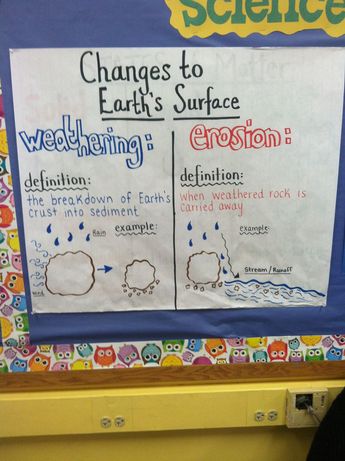 Science
Changes to
Earth's Surface
weathering:
definition:
the breakdown of Earth's
crust into sediment
Rain
example:
Wind
erosion:
definition:
When weathered rock is
carried away
example:
Stream/Runoff